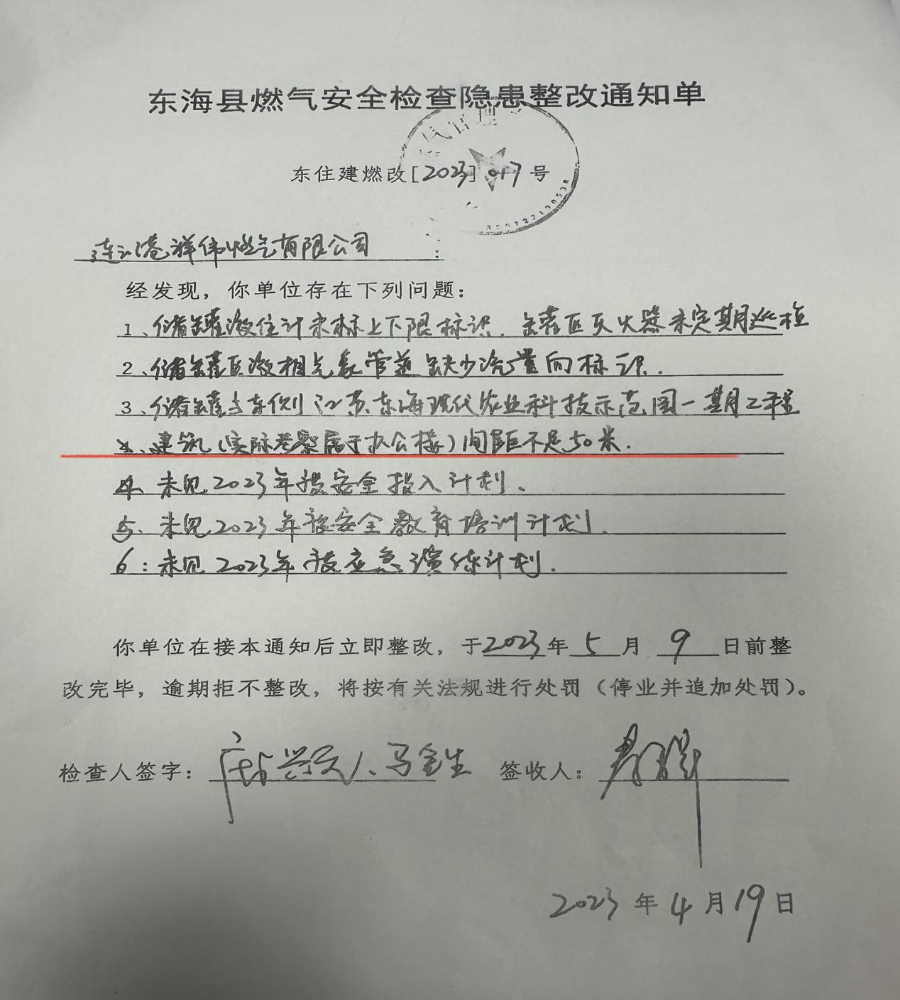 东海县燃气安全检查隐患整改通知单
东住建燃改[2023]017号
连云港祥伟燃气有限公司:
经发现,你单位存在下列问题:
1、储罐液位计未标上下限标识.罐区灭火器未定期巡检
2、储罐区液相气象管道缺少流量向标识.
3、储罐与东侧江苏东海现代农业科技示范园一期工程
建筑(实际是属于办公楼)间距不足50米.
4、未见2023年度安全投入计划、
5、未见2023年度安全教育培训计划.
6:未见2023年度应急演练计划.
你单位在接本通知后立即整改,于2023年5月9日前整
改完毕,逾期拒不整改,将按有关法规进行处罚(停业并追加处罚)。
检查人签字: 、马金生 签收人:
2023年4月19日